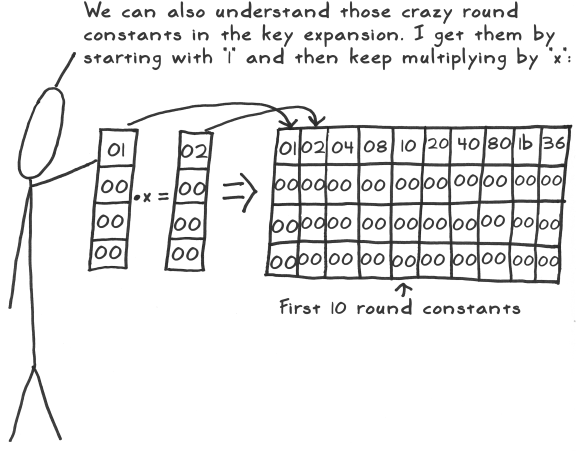 We can also understand those crazy round
constants in the key expansion. I get them by
starting with "1" and then keep multiplying by "x":
01 02 01 02 04 08 10 20 40 80 1b 36
00 00 00 00 00 00 00 00 00 00 00 00
•x = ⇒
00 00 00 00 00 00 00 00 00 00 00 00
00 00 00 00 00 00 00 00 00 00 00 00
First 10 round constants